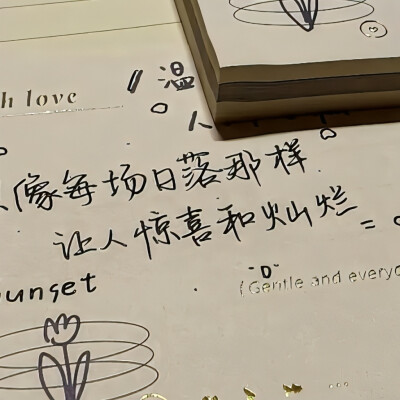 h love
温
像每场日落那样
让人惊喜和灿烂
sunset
(Gentle and everyd